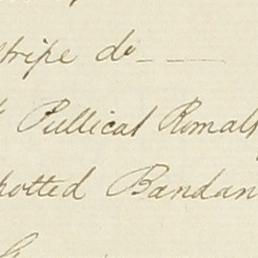 stripe do
Pullicat Romals
potted Bandan